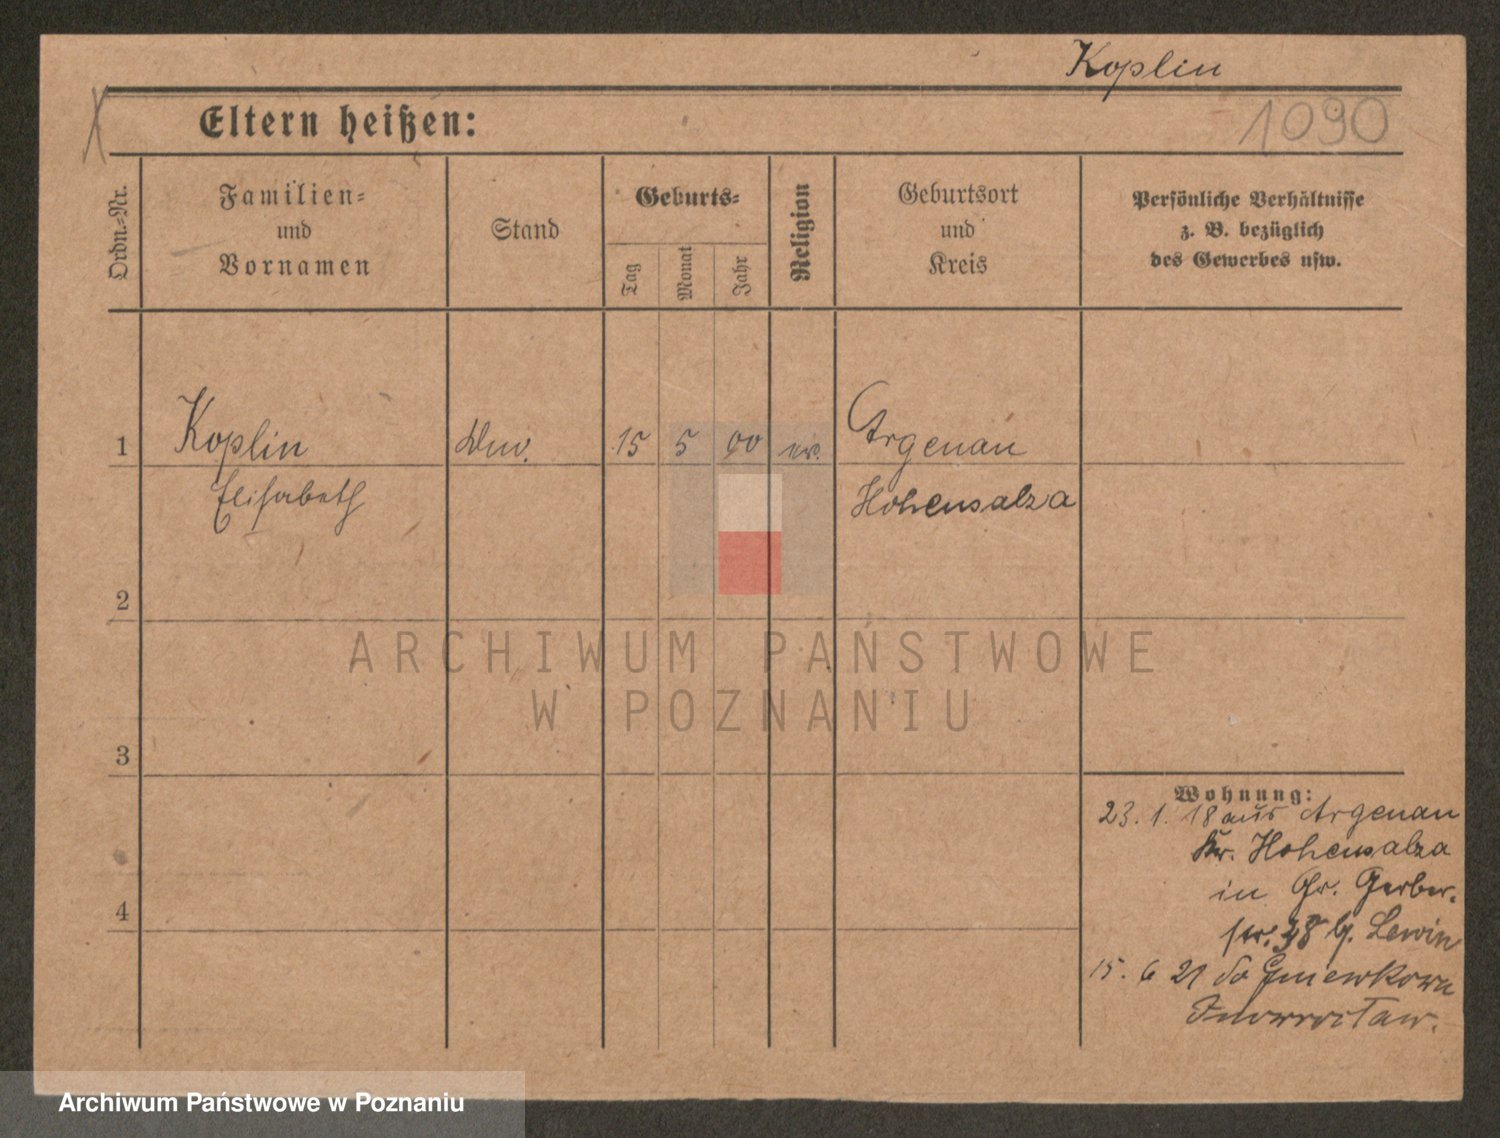 Koplin
1090
Eltern heißen:
Ordn.-Nr.
Familien-
und
Vornamen
Stand
Geburts-
Tag
Monat
Jahr
Religion
Geburtsort
und
Kreis
Persönliche Verhältnisse
z. B. bezüglich
des Gewerbes usw.
1 Koplin 15 5 00 ev. Argenau
Elisabeth Hohensalza
2
ARCHIWUM PAŃSTWOWE
W POZNANIU
3
4
Wohnung:
23. 1. 18 aus Argenau
Kr. Hohensalza
in Gr. Gerber-
str. 38 b. Lewin
15. 6 21 do Gniewkowa
Inowrocław.
Archiwum Państwowe w Poznaniu